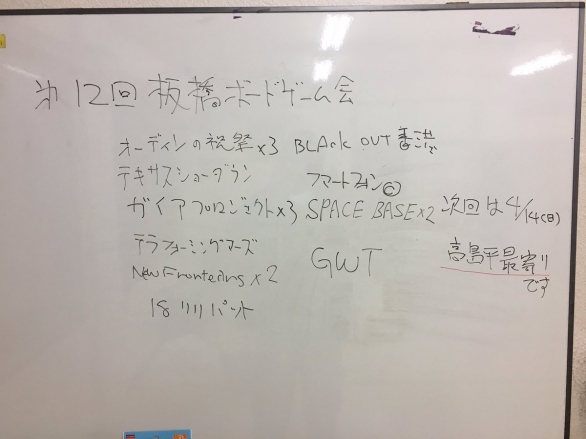 第12回 板橋ボードゲーム会
オーディンの祝祭×3 BLAck OUT 香港
テキサスショーダウン
ガイアプロジェクト×3 SPACE BASE×2 次回は4/14(日)
テラフォーミングマーズ
GWT 高島平最寄り
New Frontering ×2 です
18リリパット